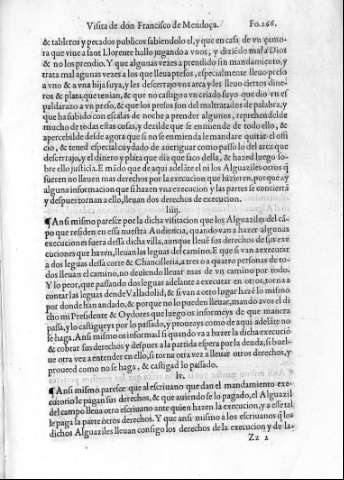 Visita de don Francisco de Mendoça. Fo.266.
& tableros y pecados publicos sabiendolo el, y que en casa de vn pinto-
ra que viue a sant Llorente hallo jugando a vnos, y diziẽdo mal a Dios
& no los prendio. Y que algunas vezes a prendido sin mandamiento, y
trata mal algunas vezes a los que lleua presos, especialmente lleuo preso
a vno & a vna hija suya, y les descerrajo vna arca y les lleuo ciertos dine-
ros & plata que tenian, & que no castigo a vn criado suyo que dio vn es
paldarazo a vn preso, & que los presos son del maltratados de palabra, y
que ha subido con escalas de noche a prender algunos, reprehẽdelde
mucho de todas estas cosas, y dezilde que se enmiende de todo ello, &
apercebilde desde agora que si no se enmienda le mandare quitar el offi
cio, & tened especial cuydado de aueriguar como passo lo del arca que
descerrajo, y el dinero y plata que diz que saco della, & hazed luego so-
bre ello justicia. E mãdo que de aqui adelãte ni el ni los Alguaziles otros q̃
fueren no lleuen mas derechos por la execucion que hizieren, porque ay
alguna informacion que si hazen vna execucion y las partes se conciertã
y despues tornan a ello, lleuan dos vezes derechos.
liiij.
¶ Ansi mismo paresce por la dicha visitacion que los Alguaziles del cã-
po que residen en essa nuestra Audiencia, quando van a hazer algunas
execuciones fuera dessa dicha villa, aunque lleuã sus derechos de las exe
cuciones que hazen, lleuan las leguas del camino. E que si van a executar
a dos leguas dessa corte & Chancilleria, a tres o a quatro personas de to-
dos lleuan el camino, no deuiendo lleuar mas de vn camino por todo.
Y lo peor, que passando dos leguas adelante a executar en otros, torna a
contar las leguas desde Valladolid, & si van a otro lugar hazẽ lo mismo
por donde han andado, & porque no lo pueden lleuar, mando a vos el di
cho mi Presidente & Oydores que luego os informeys de que manera
passa, y lo castigueys por lo passado, y proueays como de aqui adelãte no
se haga. Ansi mismo os informad si quando va a hazer la dicha execuciõ
& cobrar sus derechos y despues a la partida espera por la deuda, si buel-
ue otra vez a entender en ello, si torna otra vez a lleuar otros derechos, y
proueed como no se haga, & castigad lo passado.
lv.
¶ Ansi mismo paresce que al escriuano que dan el mandamiento exe-
cutorio le pagan sus derechos, & que auiendo se lo pagado, el Alguazil
del campo lleua otro escriuano ante quien hazen la execucion, y a esse tal
le paga la parte otros derechos. Y que ansi mismo a los escriuanos q̃ los
dichos Alguaziles lleuan consigo los derechos de la execucion y de la-
Zz 2